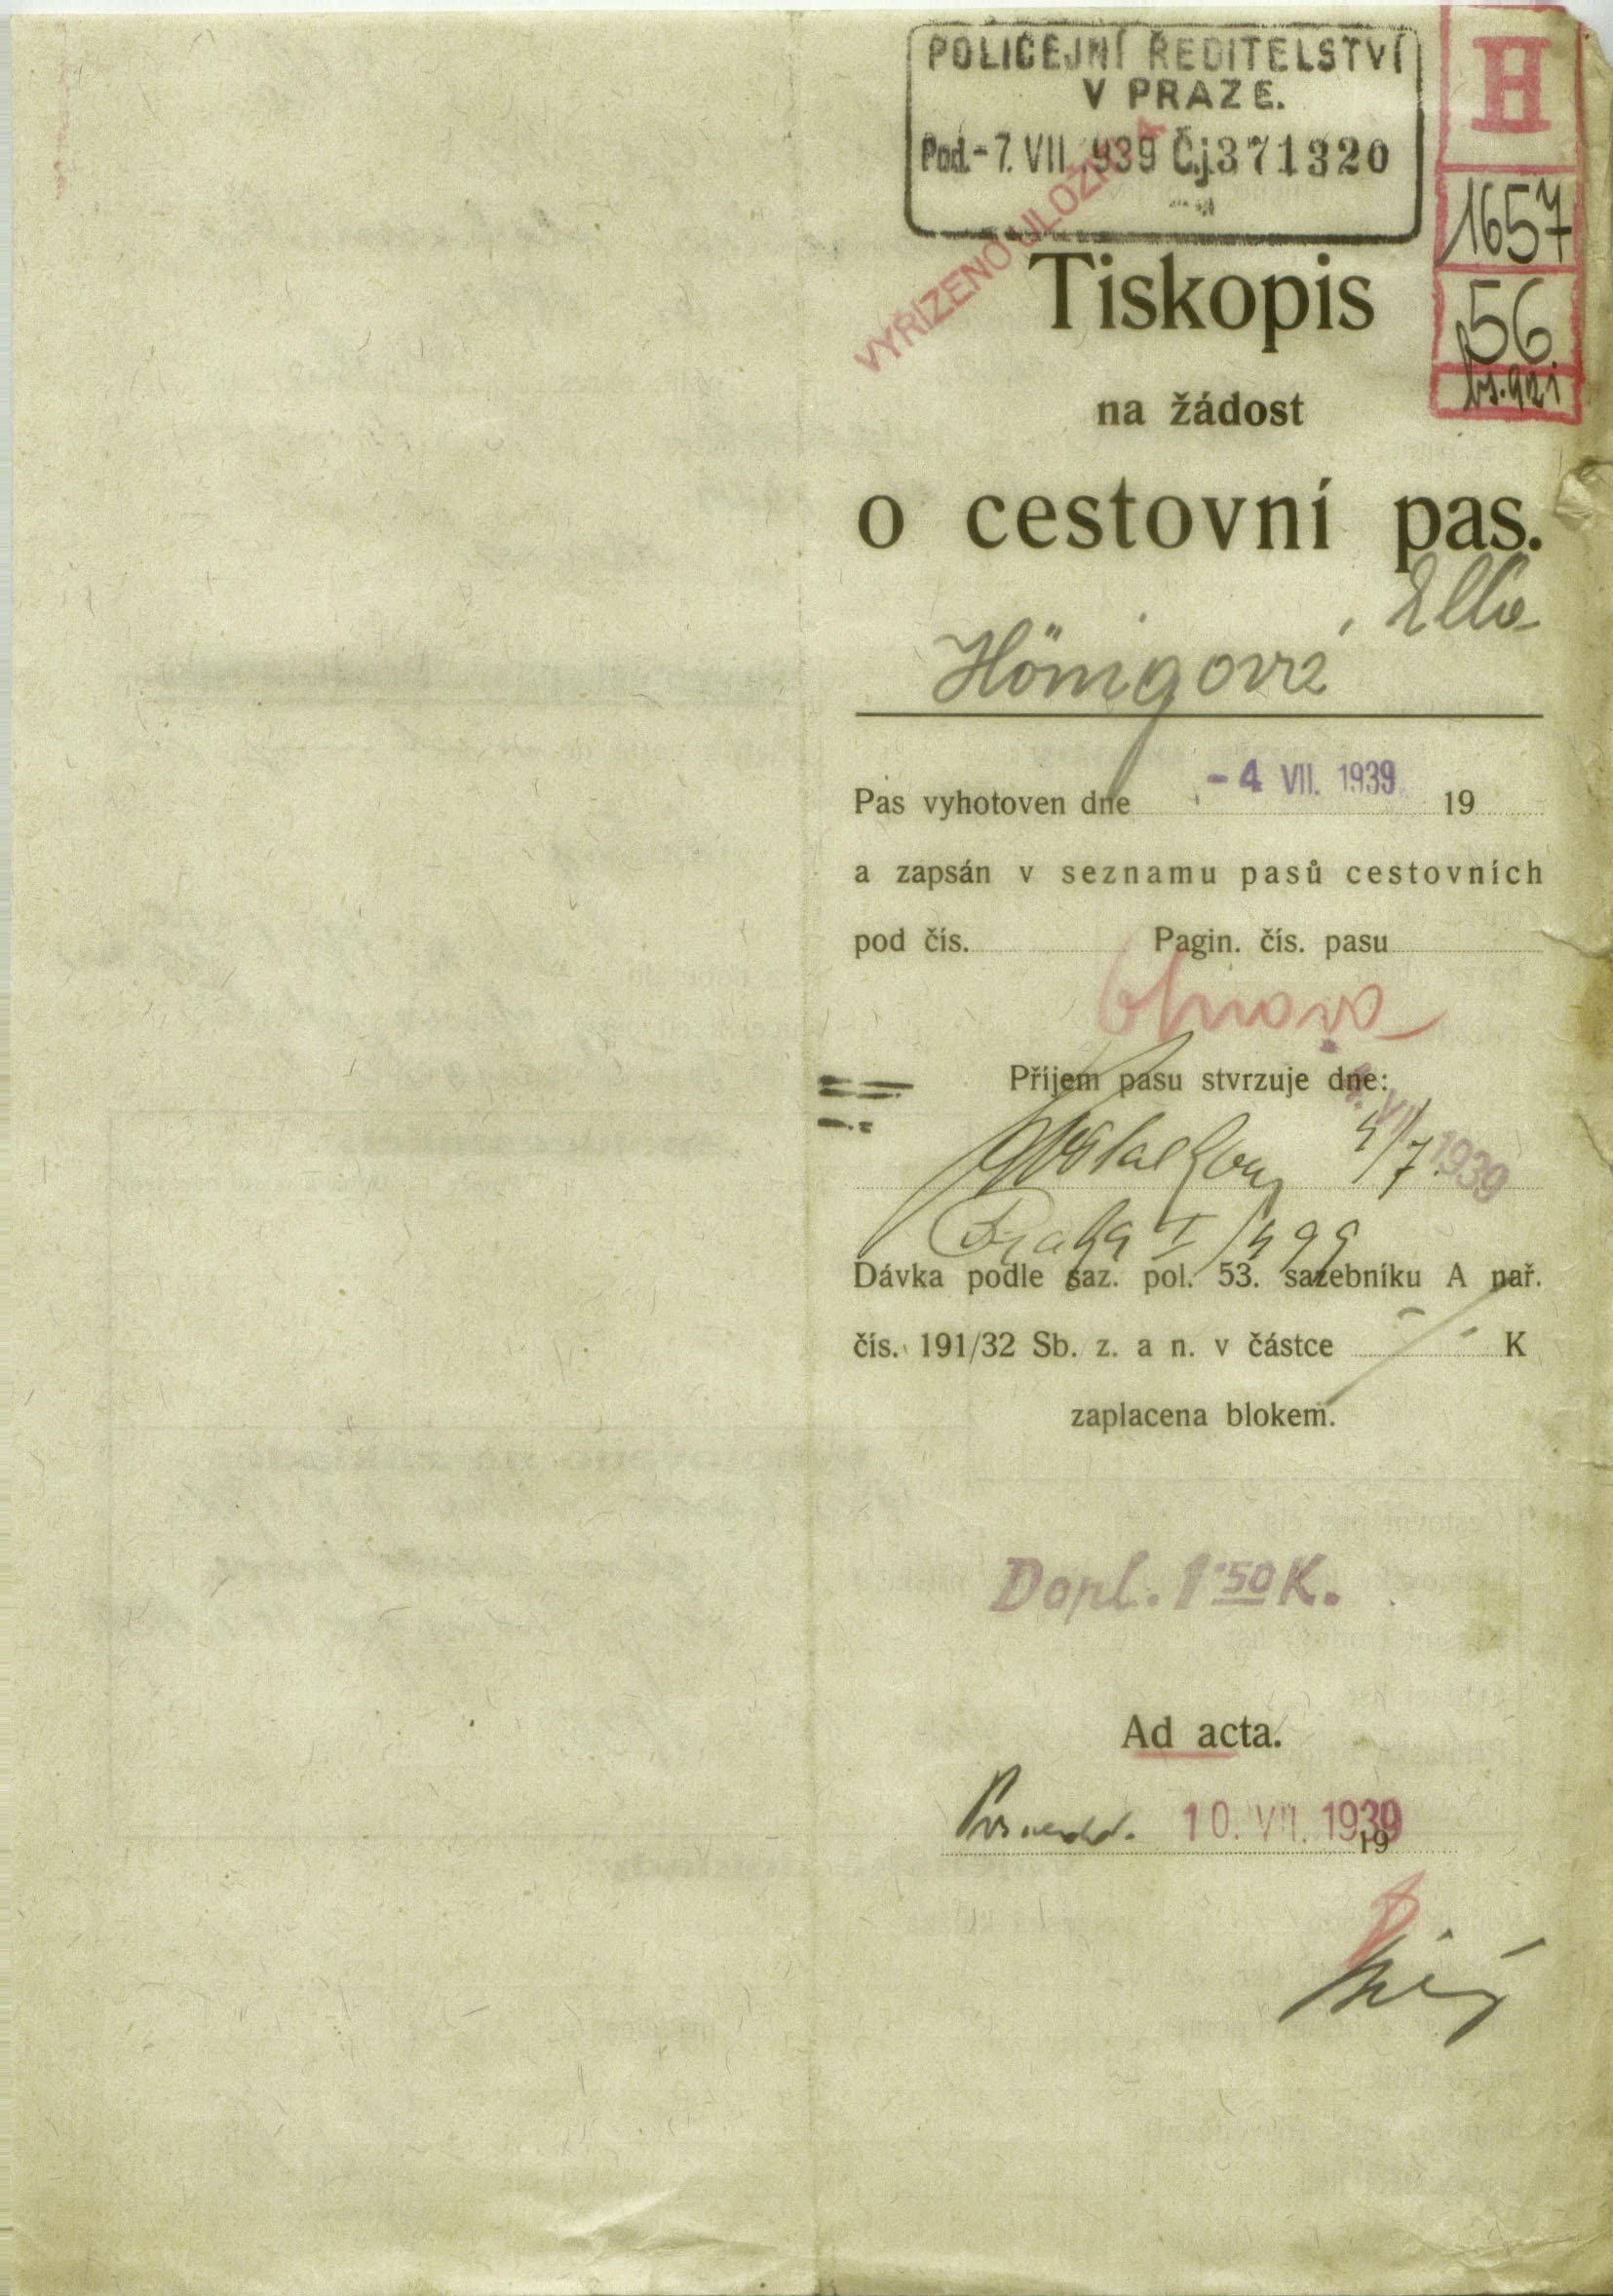 POLICEJNÍ ŘEDITELSTVÍ
V PRAZE.
Pod. - 7. VII. 939 Čj 371320
H
1657
56
VYŘÍZENO ULOŽIT
Tiskopis
na žádost
o cestovní pas.
Hönigová, Ella
Pas vyhotoven dne - 4 VII. 1939 19
a zapsán v seznamu pasů cestovních
pod čís. Pagin. čís. pasu
Příjem pasu stvrzuje dne:
4/7 VII 1939
Praha I/499
Dávka podle saz. pol. 53. sazebníku A nař.
čís. 191/32 Sb. z. a n. v částce K
zaplacena blokem.
Dopl. 1·50 K.
Ad acta.
10. VII. 1939
19